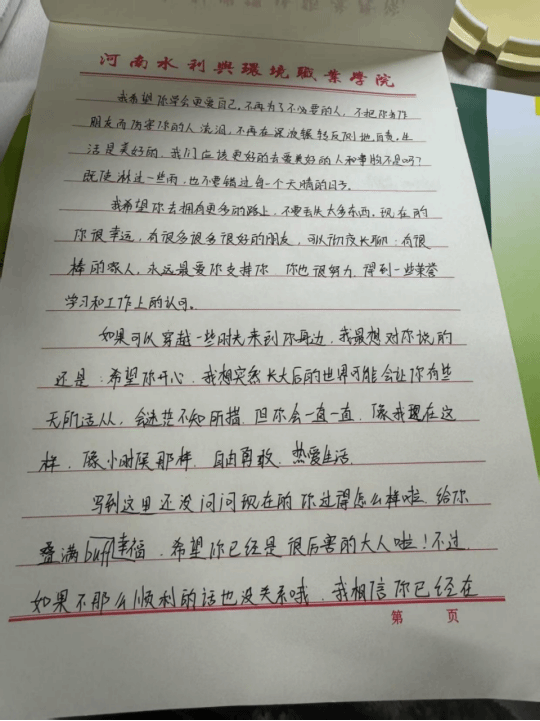 河南水利與環境職業學院
我希望你学会更爱自己，不再为了不必要的人，不把你当作
朋友而伤害你的人流泪，不再在深夜辗转反侧地自责，生
活是美好的，我们应该更好的去爱美好的人和事物不是吗？
既使淋过一些雨，也不要错过每一个天晴的日子。
我希望你去拥有更多的路上，不要丢失太多东西，现在的
你很幸运，有很多很多很好的朋友，可以彻夜长聊；有很
棒的家人，永远最爱你支持你，你也很努力，得到一些荣誉
学习和工作上的认可。
如果可以穿越一些时光来到你身边，我最想对你说的
还是：希望你开心，我想突然长大后的世界可能会让你有些
无所适从，会迷茫不知所措，但你会一直一直，像我现在这
样，像小时候那样，自由勇敢，热爱生活。
写到这里还没问问现在的你过得怎么样啦，给你
叠满buff幸福，希望你已经是很厉害的大人啦！不过
如果不那么顺利的话也没关系哦，我相信你已经在
第 页